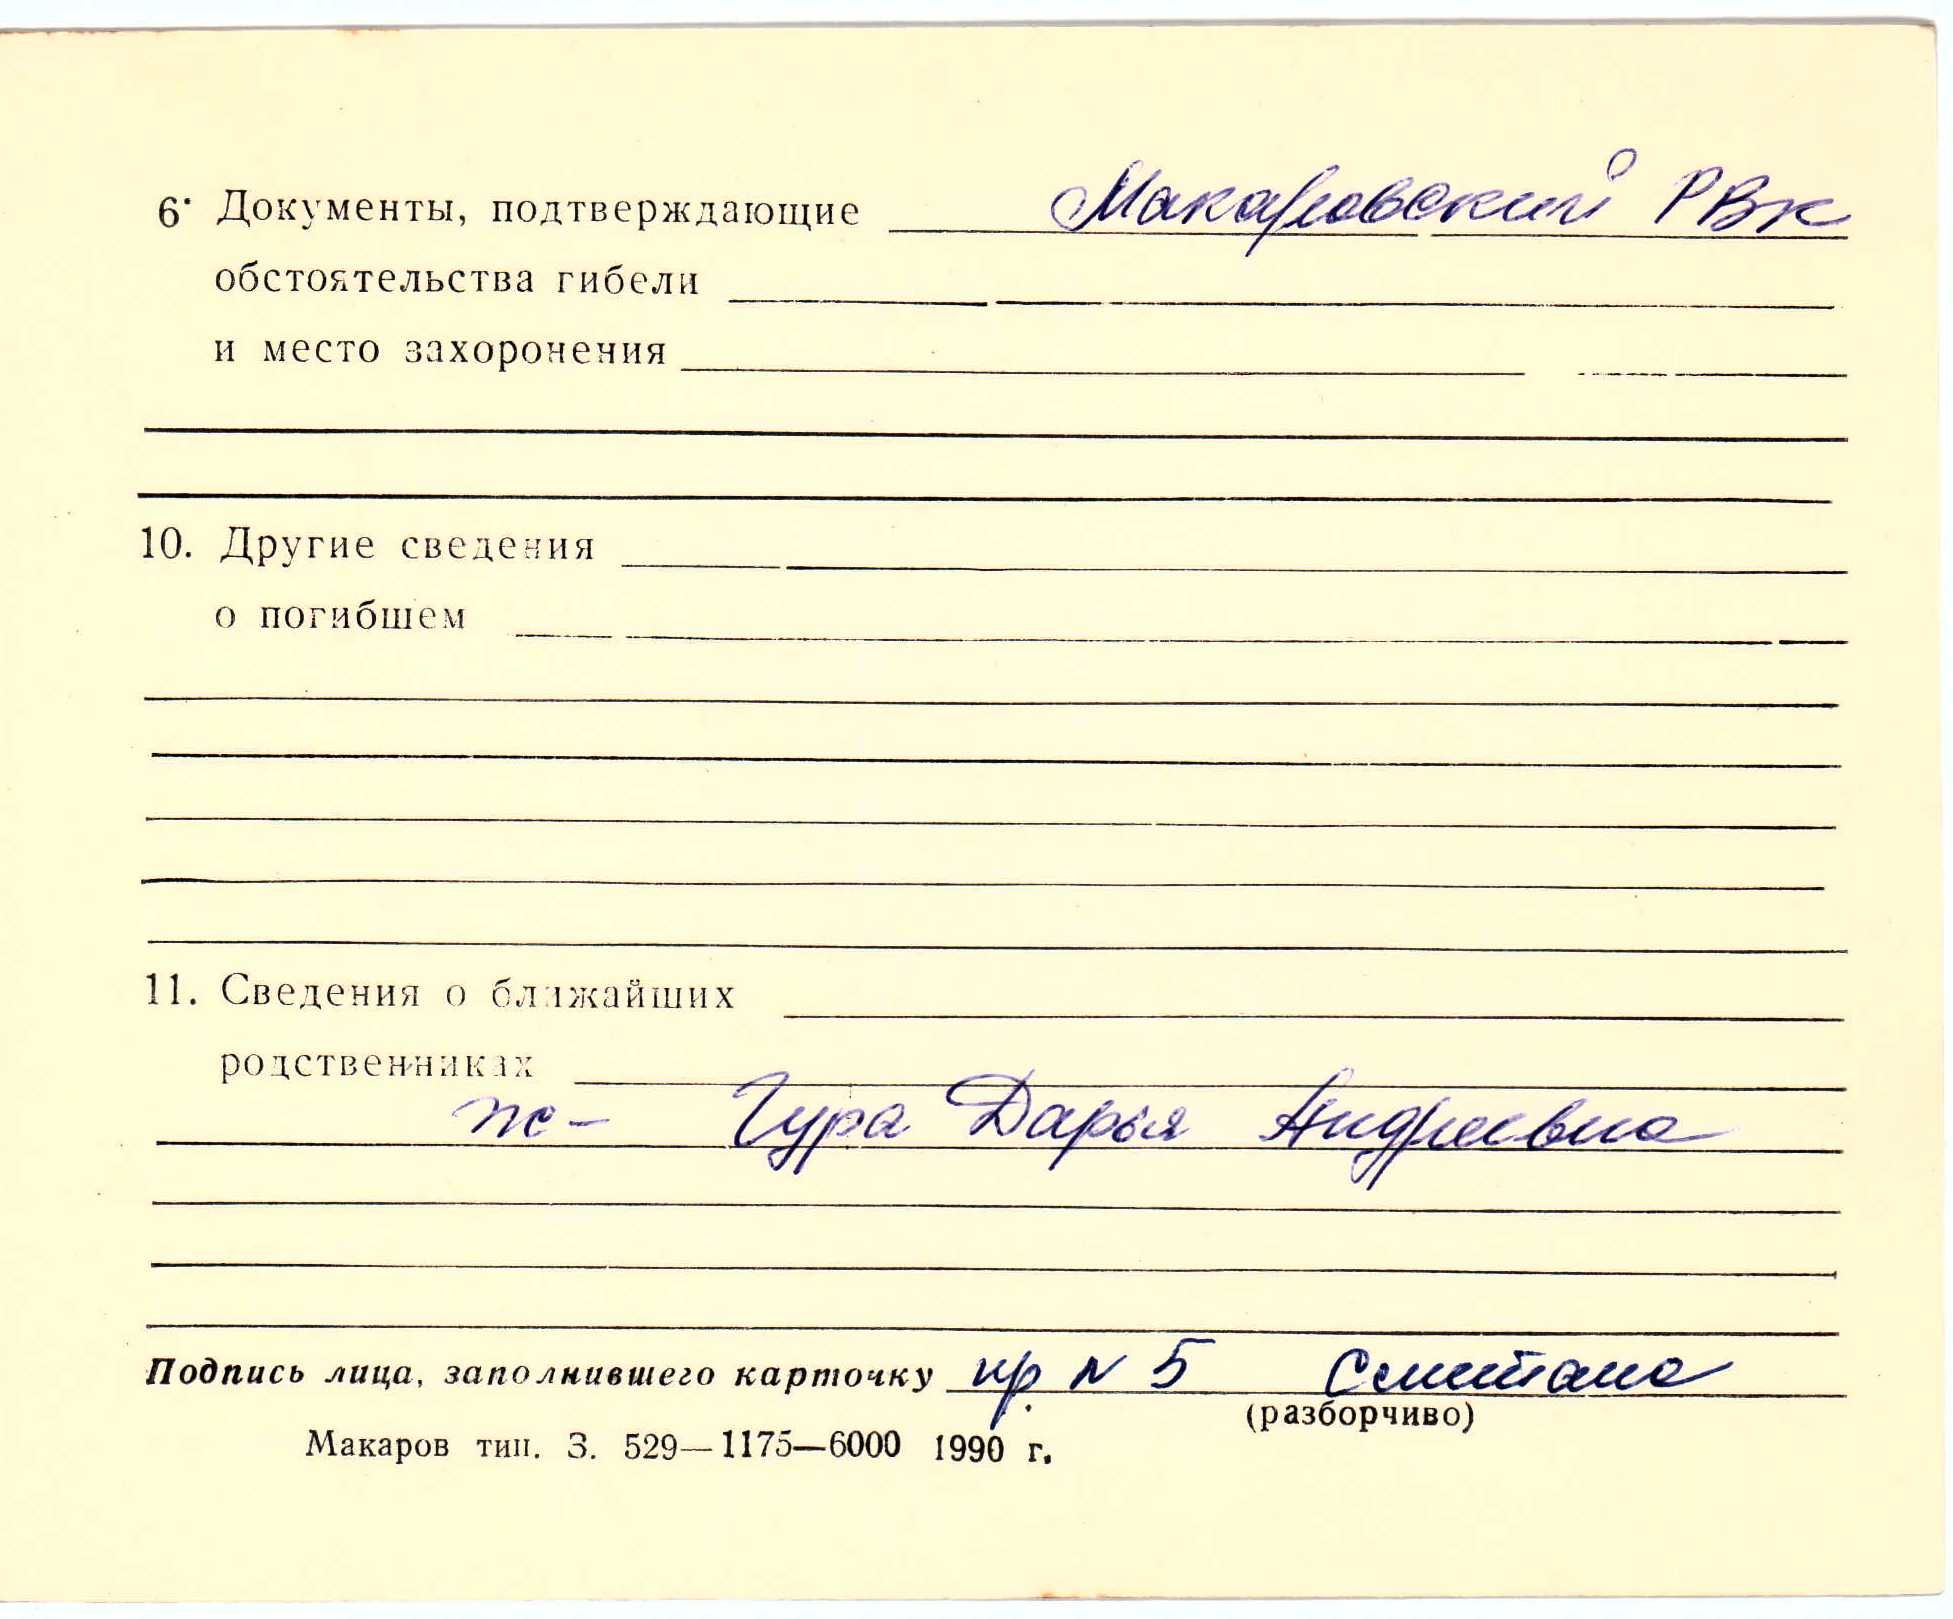 6. Документы, подтверждающие Макаровский РВК
обстоятельства гибели
и место захоронения
10. Другие сведения
о погибшем
11. Сведения о ближайших
родственниках
ж- Гура Дарья Андреевна
Подпись лица, заполнившего карточку пр. N 5 Сметана
(разборчиво)
Макаров тип. З. 529—1175—6000 1990 г.